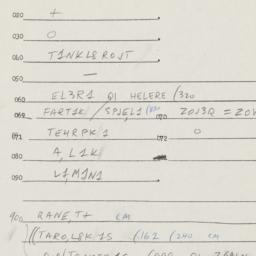 020 +
030 O
040 T1NKL8ROJT
050 —
060 EL3R1 QI HELERE /320
069 FART1K / SPJEL1 070 ZOJ3R = ZOV
071 TEHRPK1 072 O
080 A, L1K
090 L1, M1N1
900 RANE, T+ CM
((TARO, L8K 1S (162 (240 CM